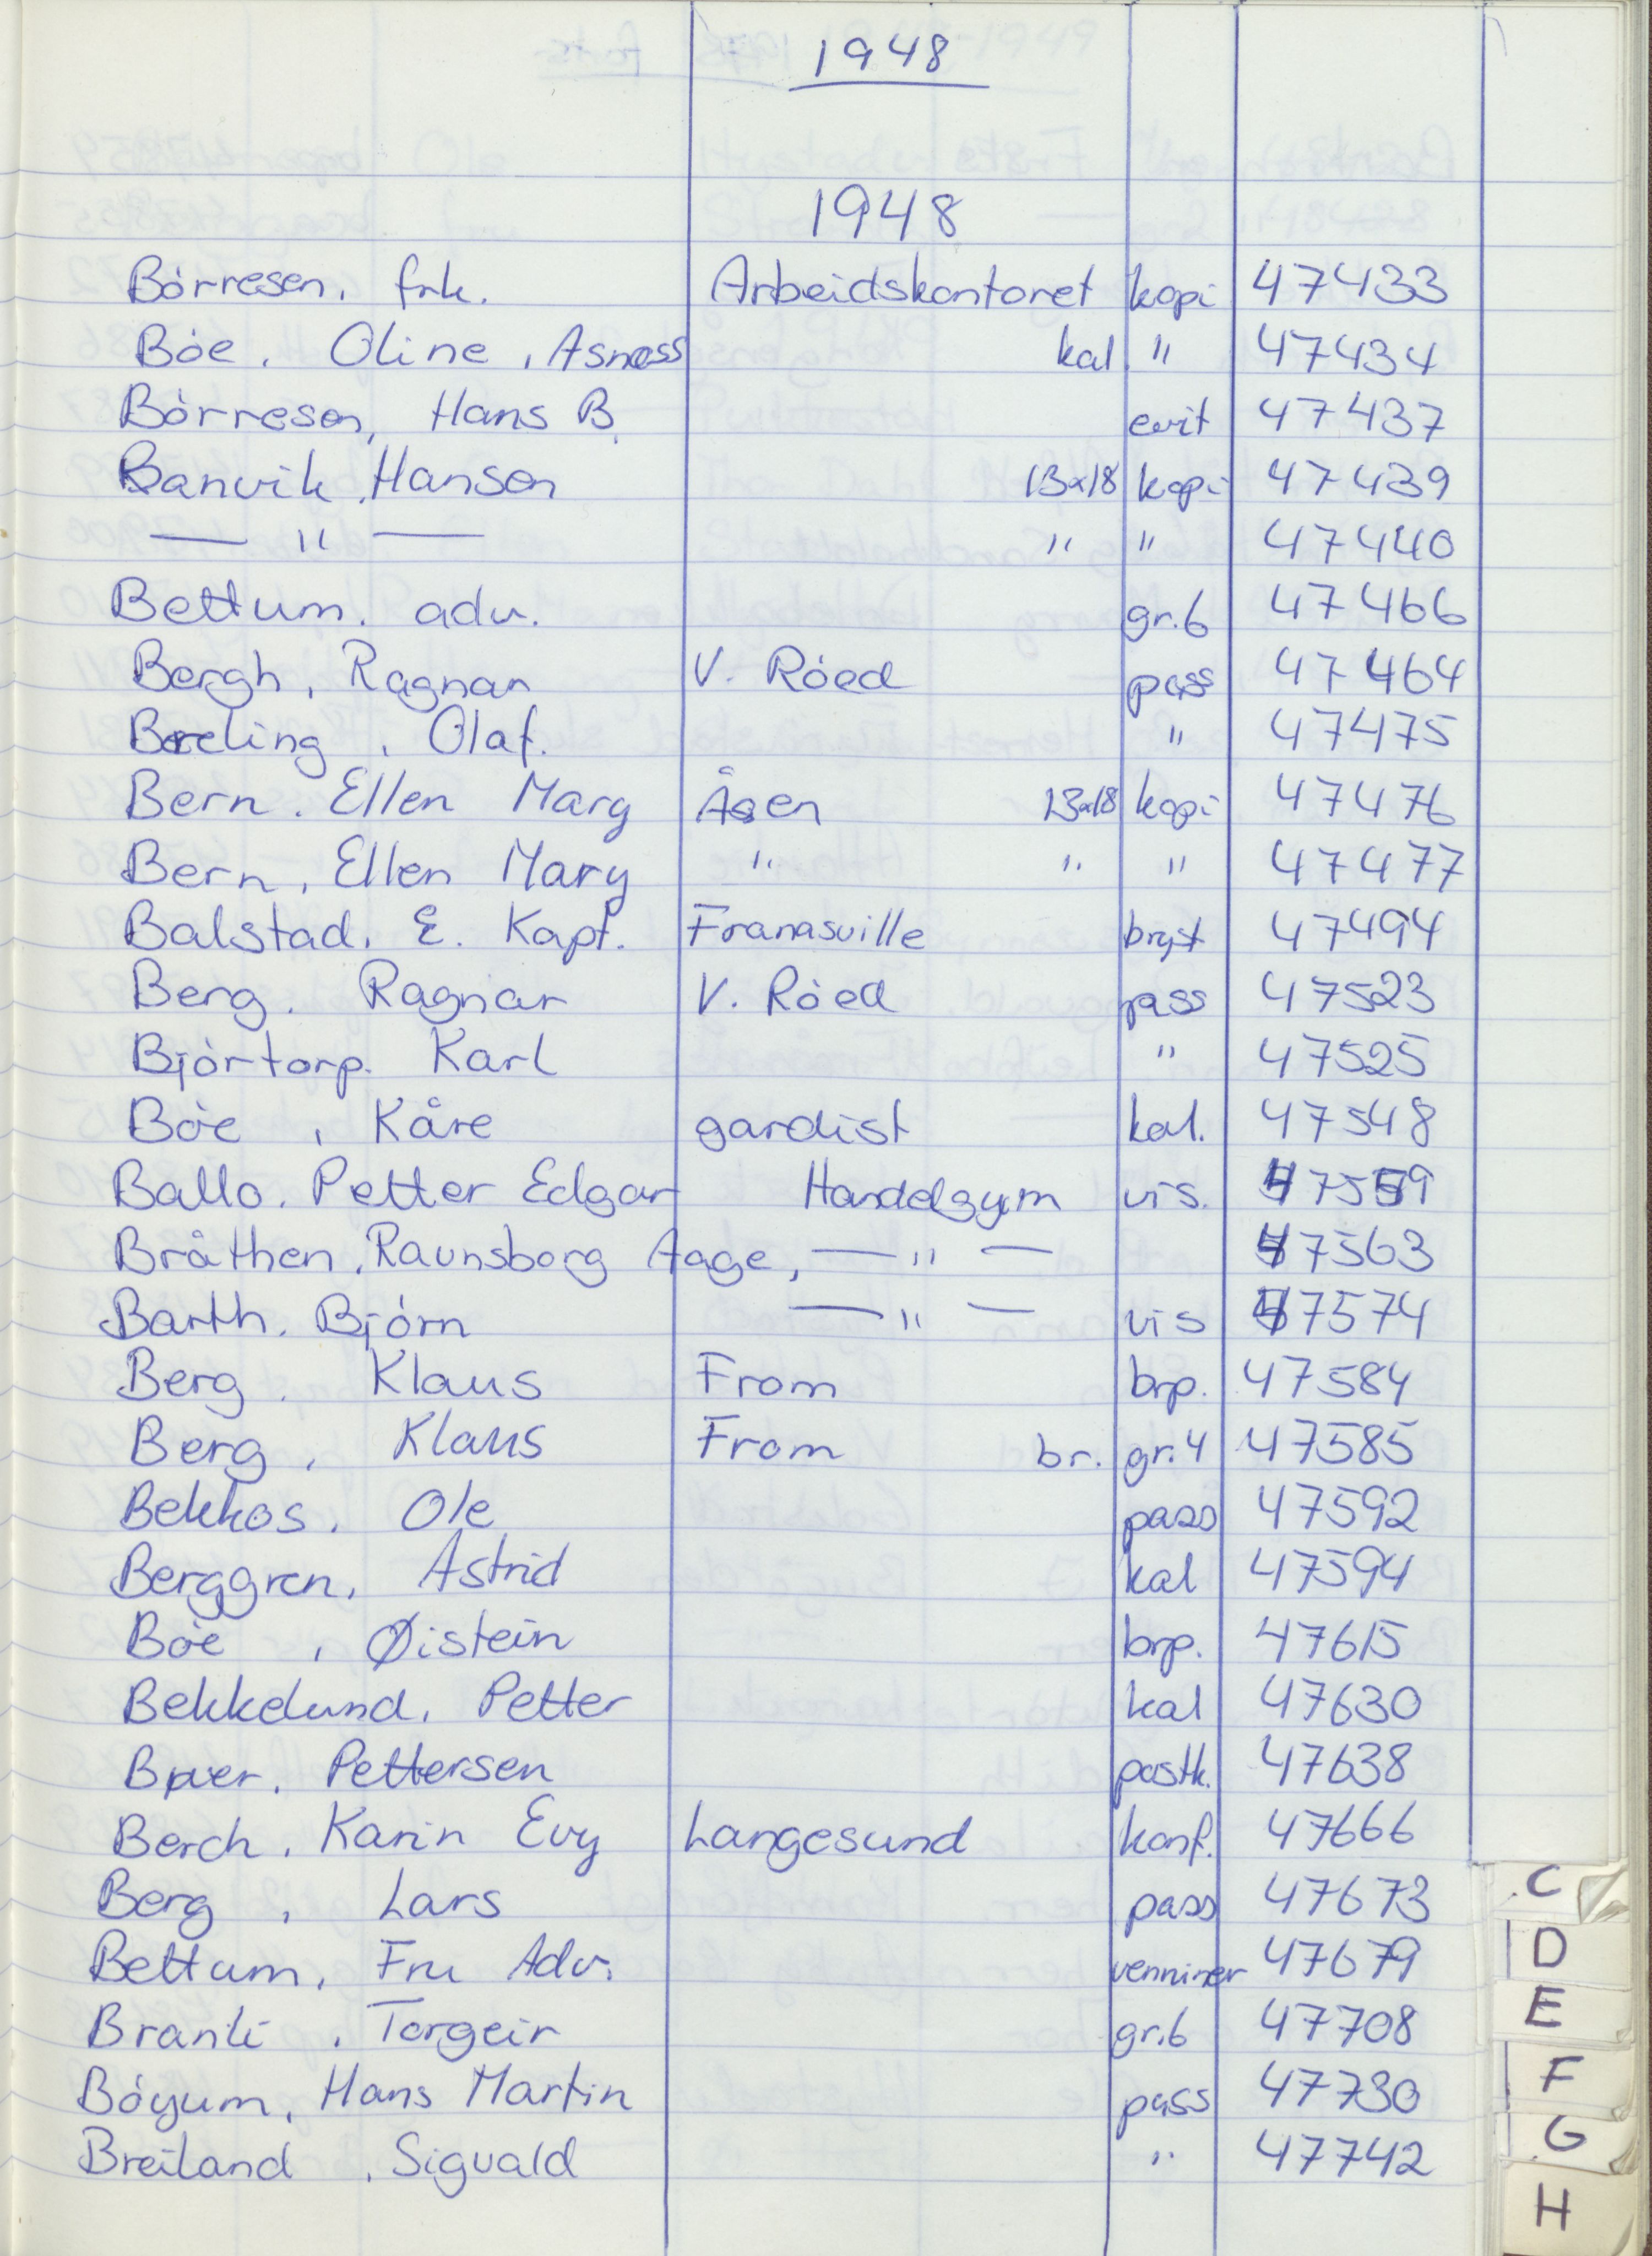 1948
1948
Börresen, frk. Arbeidskontoret kopi 47433
Böe, Oline, Asness kal " 47434
Börresen, Hans B. evit 47437
Banvik, Hanson 13x18 kopi 47439
— " — " " 47440
Bettum. adv. gr.6 47466
Bergh, Ragnar V. Röed pass 47464
Breling, Olaf. " 47475
Bern. Ellen Mary Åsen 13x18 kopi 47476
Bern, Ellen Mary " " " 47477
Balstad, E. Kapt. Franasville bryst 47494
Berg. Ragnar V. Röed pass 47523
Bjórtorp. Karl " 47525
Böe, Kåre gardist kal. 47548
Ballo. Petter Edgar Handelsgym vis. 47559
Bråthen, Raunsborg Aage, — " — 47563
Barth. Bjórn — " — vis 47574
Berg. Klaus From brp. 47584
Berg, Klaus From br. gr.4 47585
Bekkos, Ole pass 47592
Berggren, Astrid kal 47594
Böe, Øistein brp. 47615
Bekkelund, Petter kal 47630
Pettersen postk. 47638
Berch, Karin Evy Langesund konf. 47666
Berg, Lars pass 47673
Bettum, Fru Adv. 47679
Branli, Torgeir gr.6 47708
Bóyum, Hans Martin pass 47730
Breiland, Sigvald " 47742
C
D
E
F
G
H